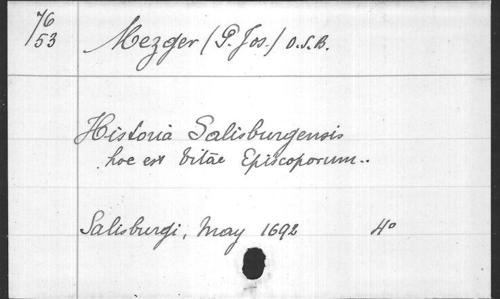 76
53
Mezger (P. Jos.) O.S.B.
Historia Salisburgensis
hoc est Vitae Episcoporum..
Salisburgi, May 1692 4°